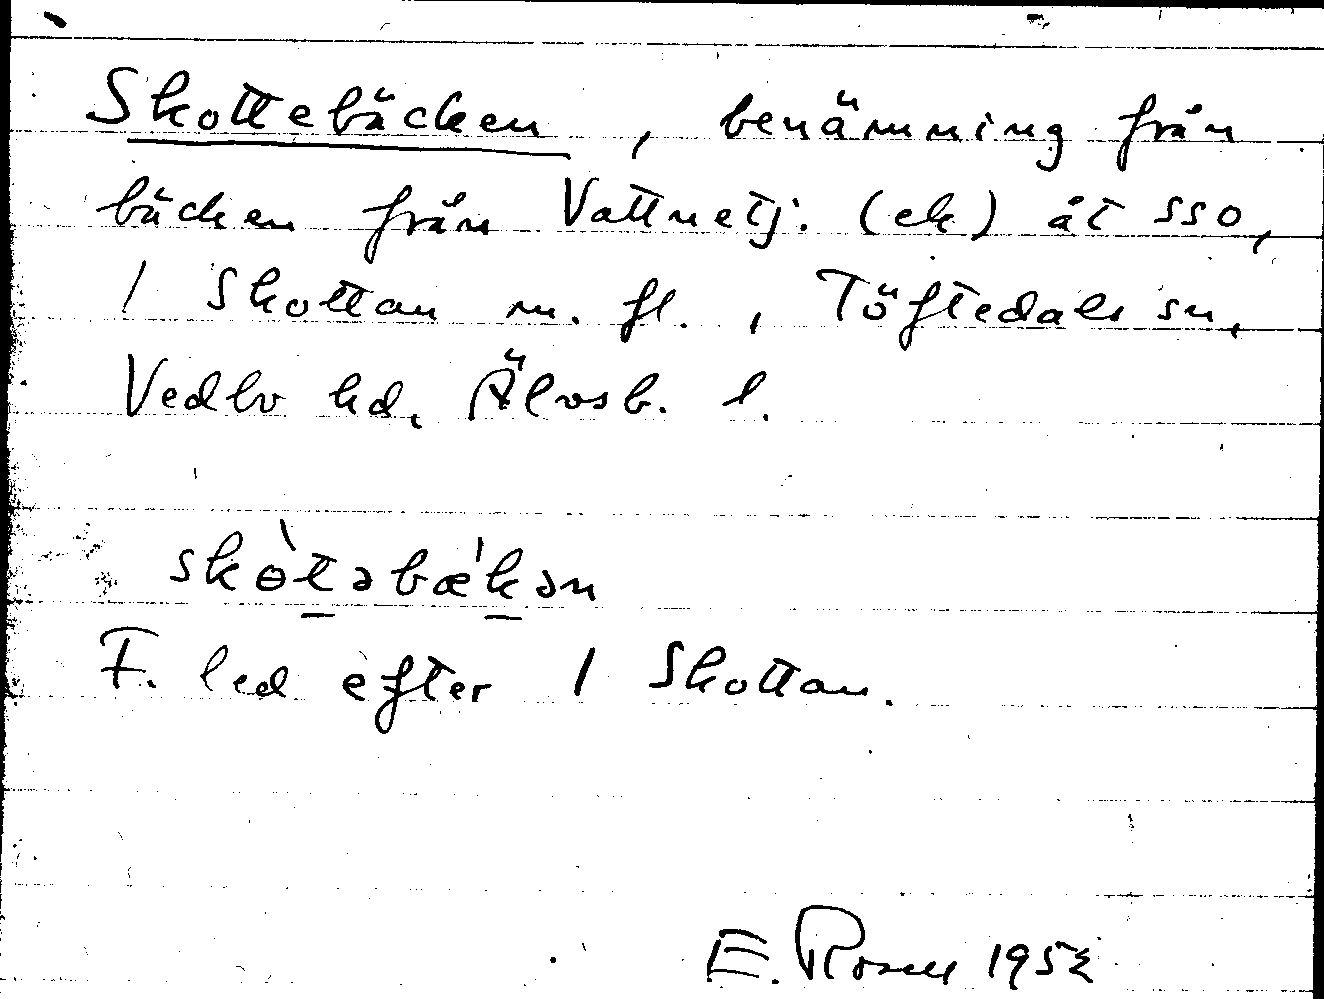 Skottebäcken, benämning från
bäcken från Vattnetj. (ek) åt SSO,
1 Skottan m. fl., Töftedals sn,
Vedbo hd, Älvsb. l.
skɵ̀təbæ'kən
F. led efter 1 Skottan.
E. Rosell 1952